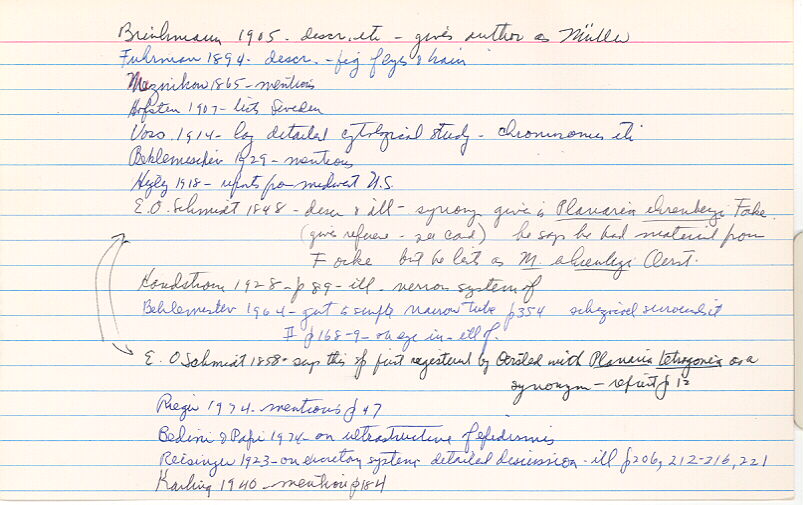 Brinkmann 1905 - descr. etc - gives author as Müller
Fuhrman 1894 - descr. - fig of eyes & brain
Meznikow 1865 - mentions
Hofsten 1907 - lists Sweden
Voss 1914 - long detailed cytological study - chromosomes etc
Beklemischev 1929 - mentions
Higley 1918 - reports from midwest U.S.
E. O. Schmidt 1848 - descr & ill - synony given is Planaria ehrenbergi Focke.
(gives reference - see card) he says he had material from
Focke but he lists as M. ehrenbergi Oerst.
1928 - p 89 - ill - nervous system of
Beklemischev 1964 - gut a simple narrow tube p354 surrounds it
II p 168-9 - on eye in - ill of.
E. O Schmidt 1858 - says this sp first registered by Örsted with Planaria tetragonia as a
synonym - reprint p 12
Rieger 1974 - mentions p 47
Bedini & Papi 1974 - on ultrastructure of epidermis
Reisinger 1923 - on excretory system detailed discussion - ill p206, 212-216, 221
Karling 1940 - mentions p184